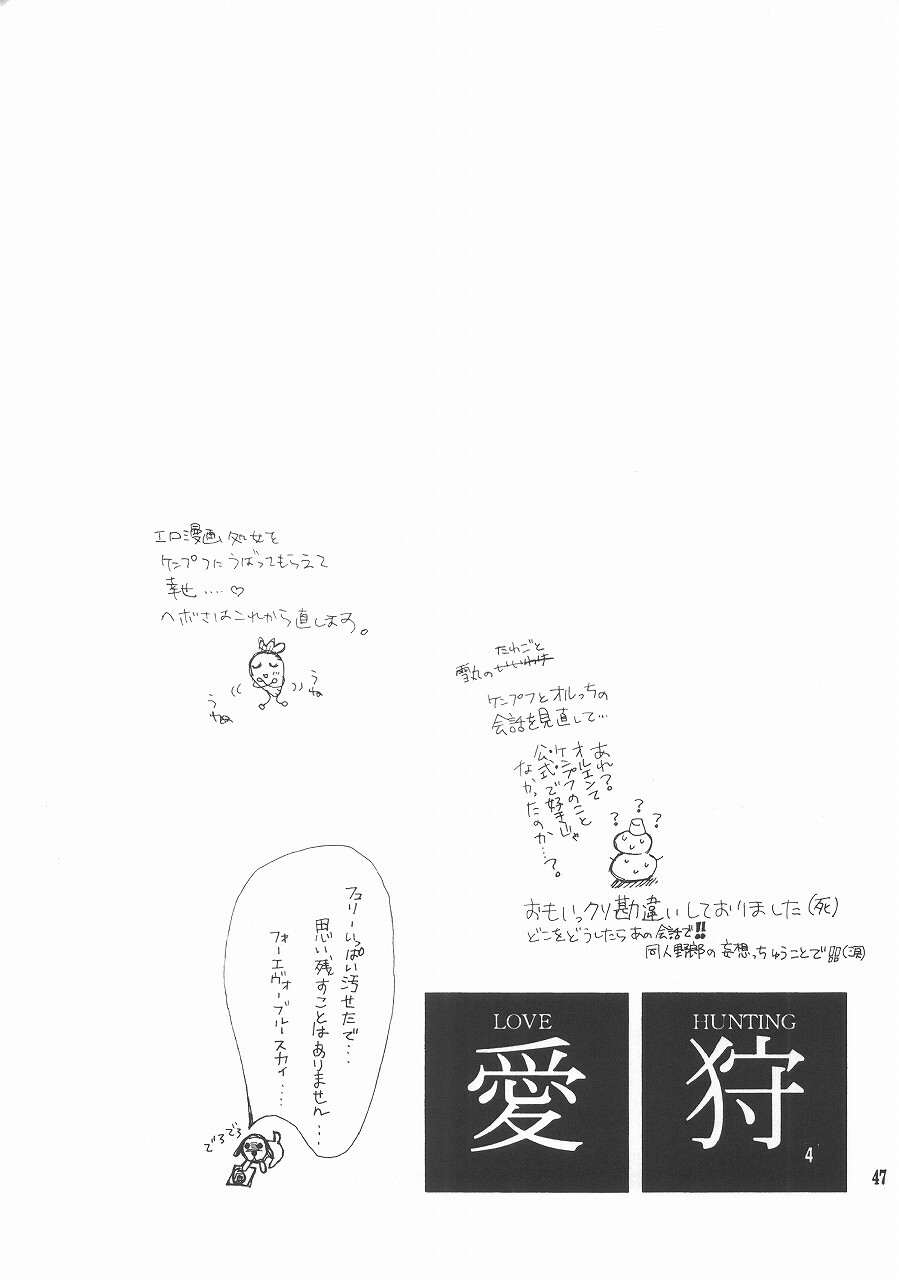 エロ漫画処女を
ケンプフにうばってもらえて
幸せ....♡
ヘボさはこれから直します。
うね
うねぬ
たわごと
雪丸のいいわけ
ケンプフとオルっちの
会話を見直して...
あれ?
オルエンて
ケンプフのこと
公式で好きじゃ
なかったのか...?。
? ? ?
おもいっクソ勘違いしておりました(死)
どこをどうしたらあの会話で!!
同人野郎の妄想っちゅうことで (涙)
フュリーいっぱい汚せたで...
思い残すことはありません...
フォーエヴァーブルースカイ....
でろでろ
LOVE
愛
HUNTING
狩
4
47